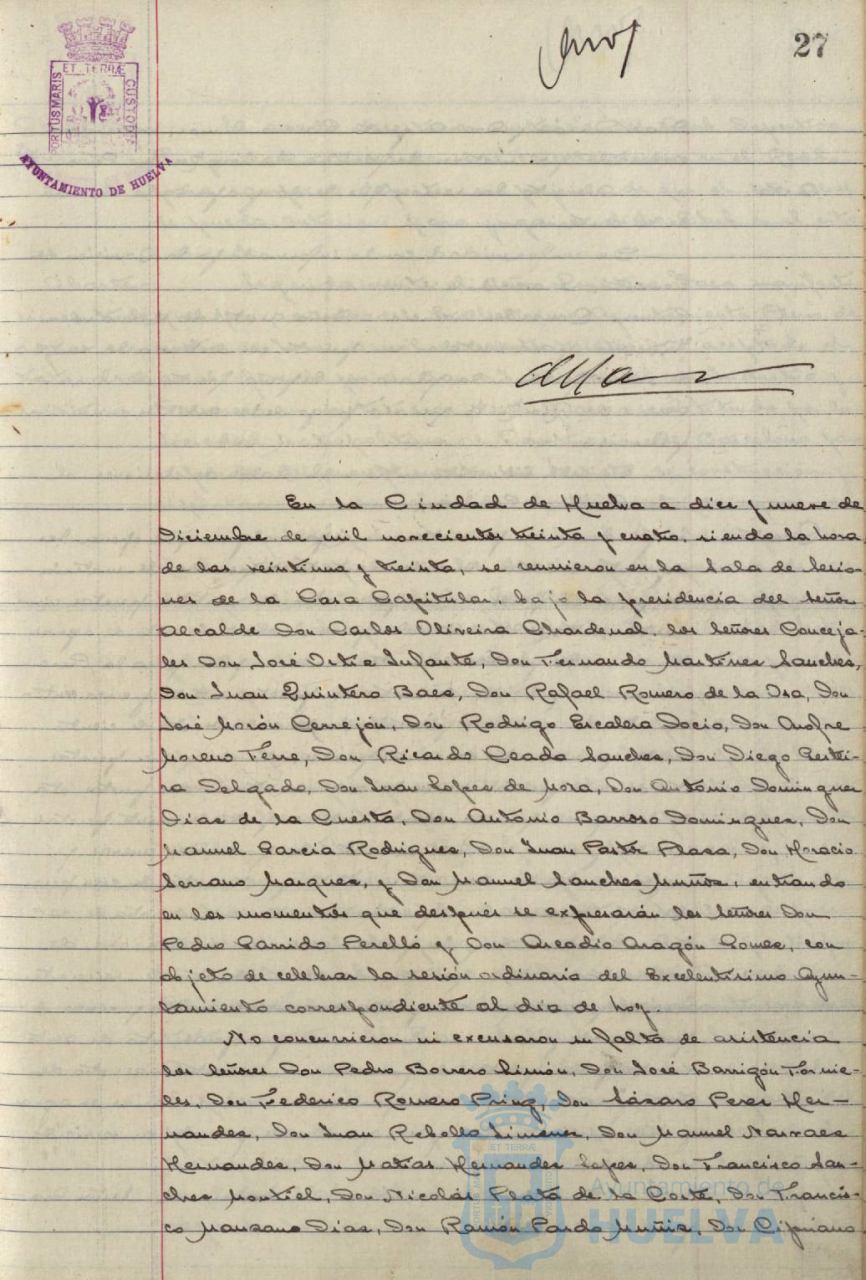 27
PORTUS MARIS
ET TERRÆ
CUSTODIA
AYUNTAMIENTO DE HUELVA
En la Ciudad de Huelva a diez y nueve de
Diciembre de mil novecientos treinta y cuatro, siendo la hora
de las veintiuna y treinta, se reunieron en la Sala de Sesio-
nes de la Casa Capitular, bajo la presidencia del Señor
Alcalde Don Carlos Oliveira Chardenal, los Señores Conceja-
les Don José Ortiz Infante, Don Fernando Martínez Sanchez,
Don Juan Quintero Baez, Don Rafael Romero de la Osa, Don
José Morón Cerrejón, Don Rodrigo Escalera Socio, Don Onofre
Moreno Terre, Don Ricardo Ceada Sanchez, Don Diego
Delgado, Don Juan Lopez de Mora, Don Antonio Dominguez
Diaz de la Cuesta, Don Antonio Barroso Dominguez, Don
Manuel Garcia Rodriguez, Don Juan Pastor Plaza, Don Horacio
Serrano Marquez, y Don Manuel Sanchez Muñoz, entrando
en los momentos que después se expresarán los Señores Don
Pedro Garrido Perelló y Don Arcadio Aragón Gomez, con
objeto de celebrar la sesión ordinaria del Excelentísimo Ayun-
tamiento correspondiente al dia de hoy.
No concurrieron ni excusaron su falta de asistencia
los Señores Don Pedro Borrero Limón, Don José Barrigón Fornie-
les, Don Federico Romero Prinz, Don Lázaro Perez Her-
nandez, Don Juan Rebollo Jimenez, Don Manuel Narvaez
Hernandez, Don Matías Hernandez Lopez, Don Francisco San-
chez Montiel, Don Nicolás Plata de la Corte, Don Francis-
co Manzano Diaz, Don Ramón Pardo Muñiz, Don Cipriano
Ayuntamiento de
HUELVA